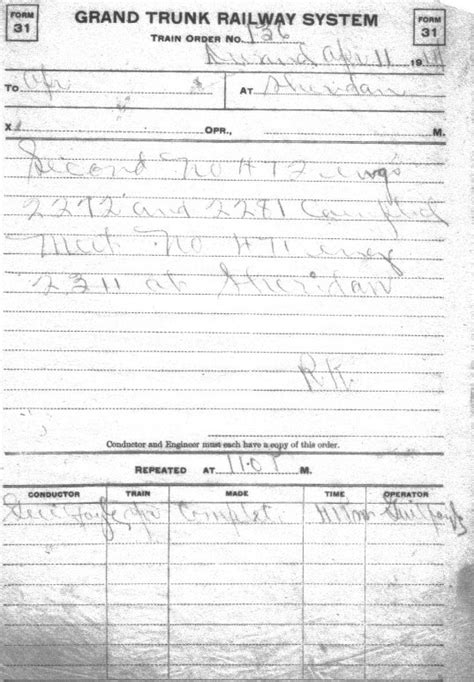 FORM 31
GRAND TRUNK RAILWAY SYSTEM
FORM 31
TRAIN ORDER No. 136
Durand Apr 11 19
To Opr
AT Sheridan
X OPR., M.
Second No 472 engs
2272 and 2281 coupled
Meet No 471 eng
2311 at Sheridan
R.K.
Conductor and Engineer must each have a copy of this order.
REPEATED AT 11.05 M.
CONDUCTOR TRAIN MADE TIME OPERATOR
Complet